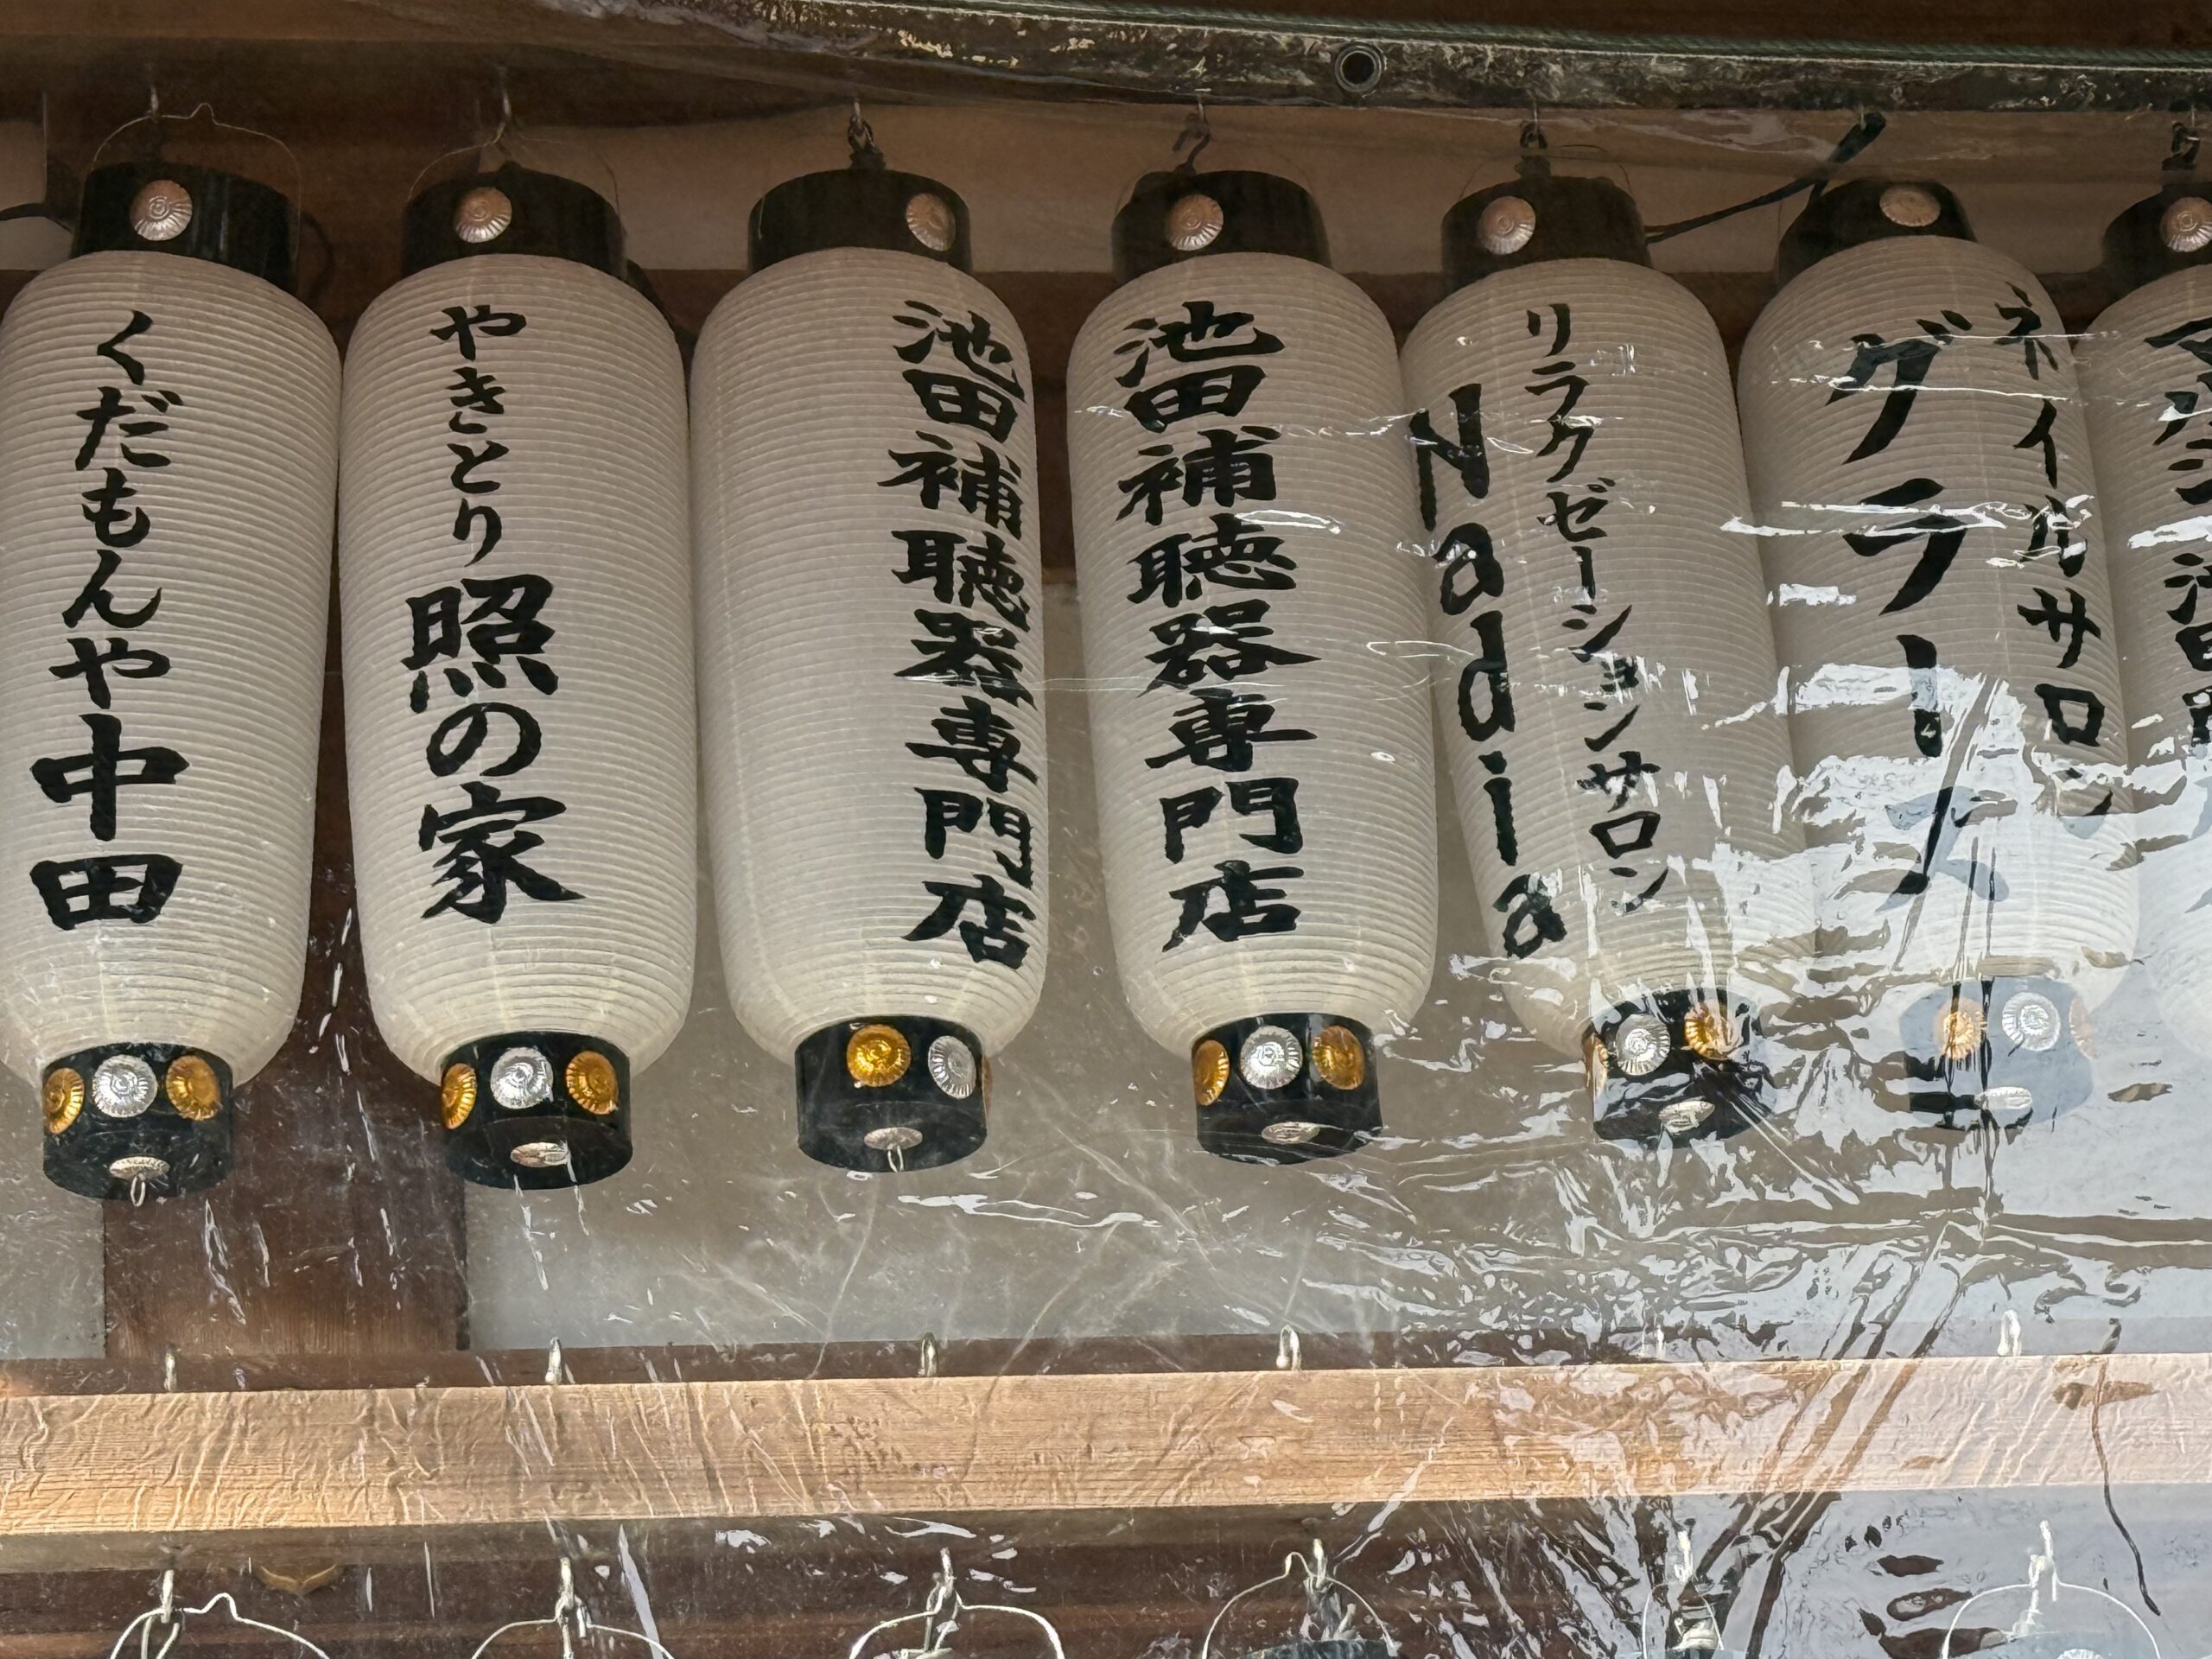 くだもんや中田
やきとり照の家
池田補聴器専門店
池田補聴器専門店
リラクゼーションサロン
Nadia
ネイルサロン